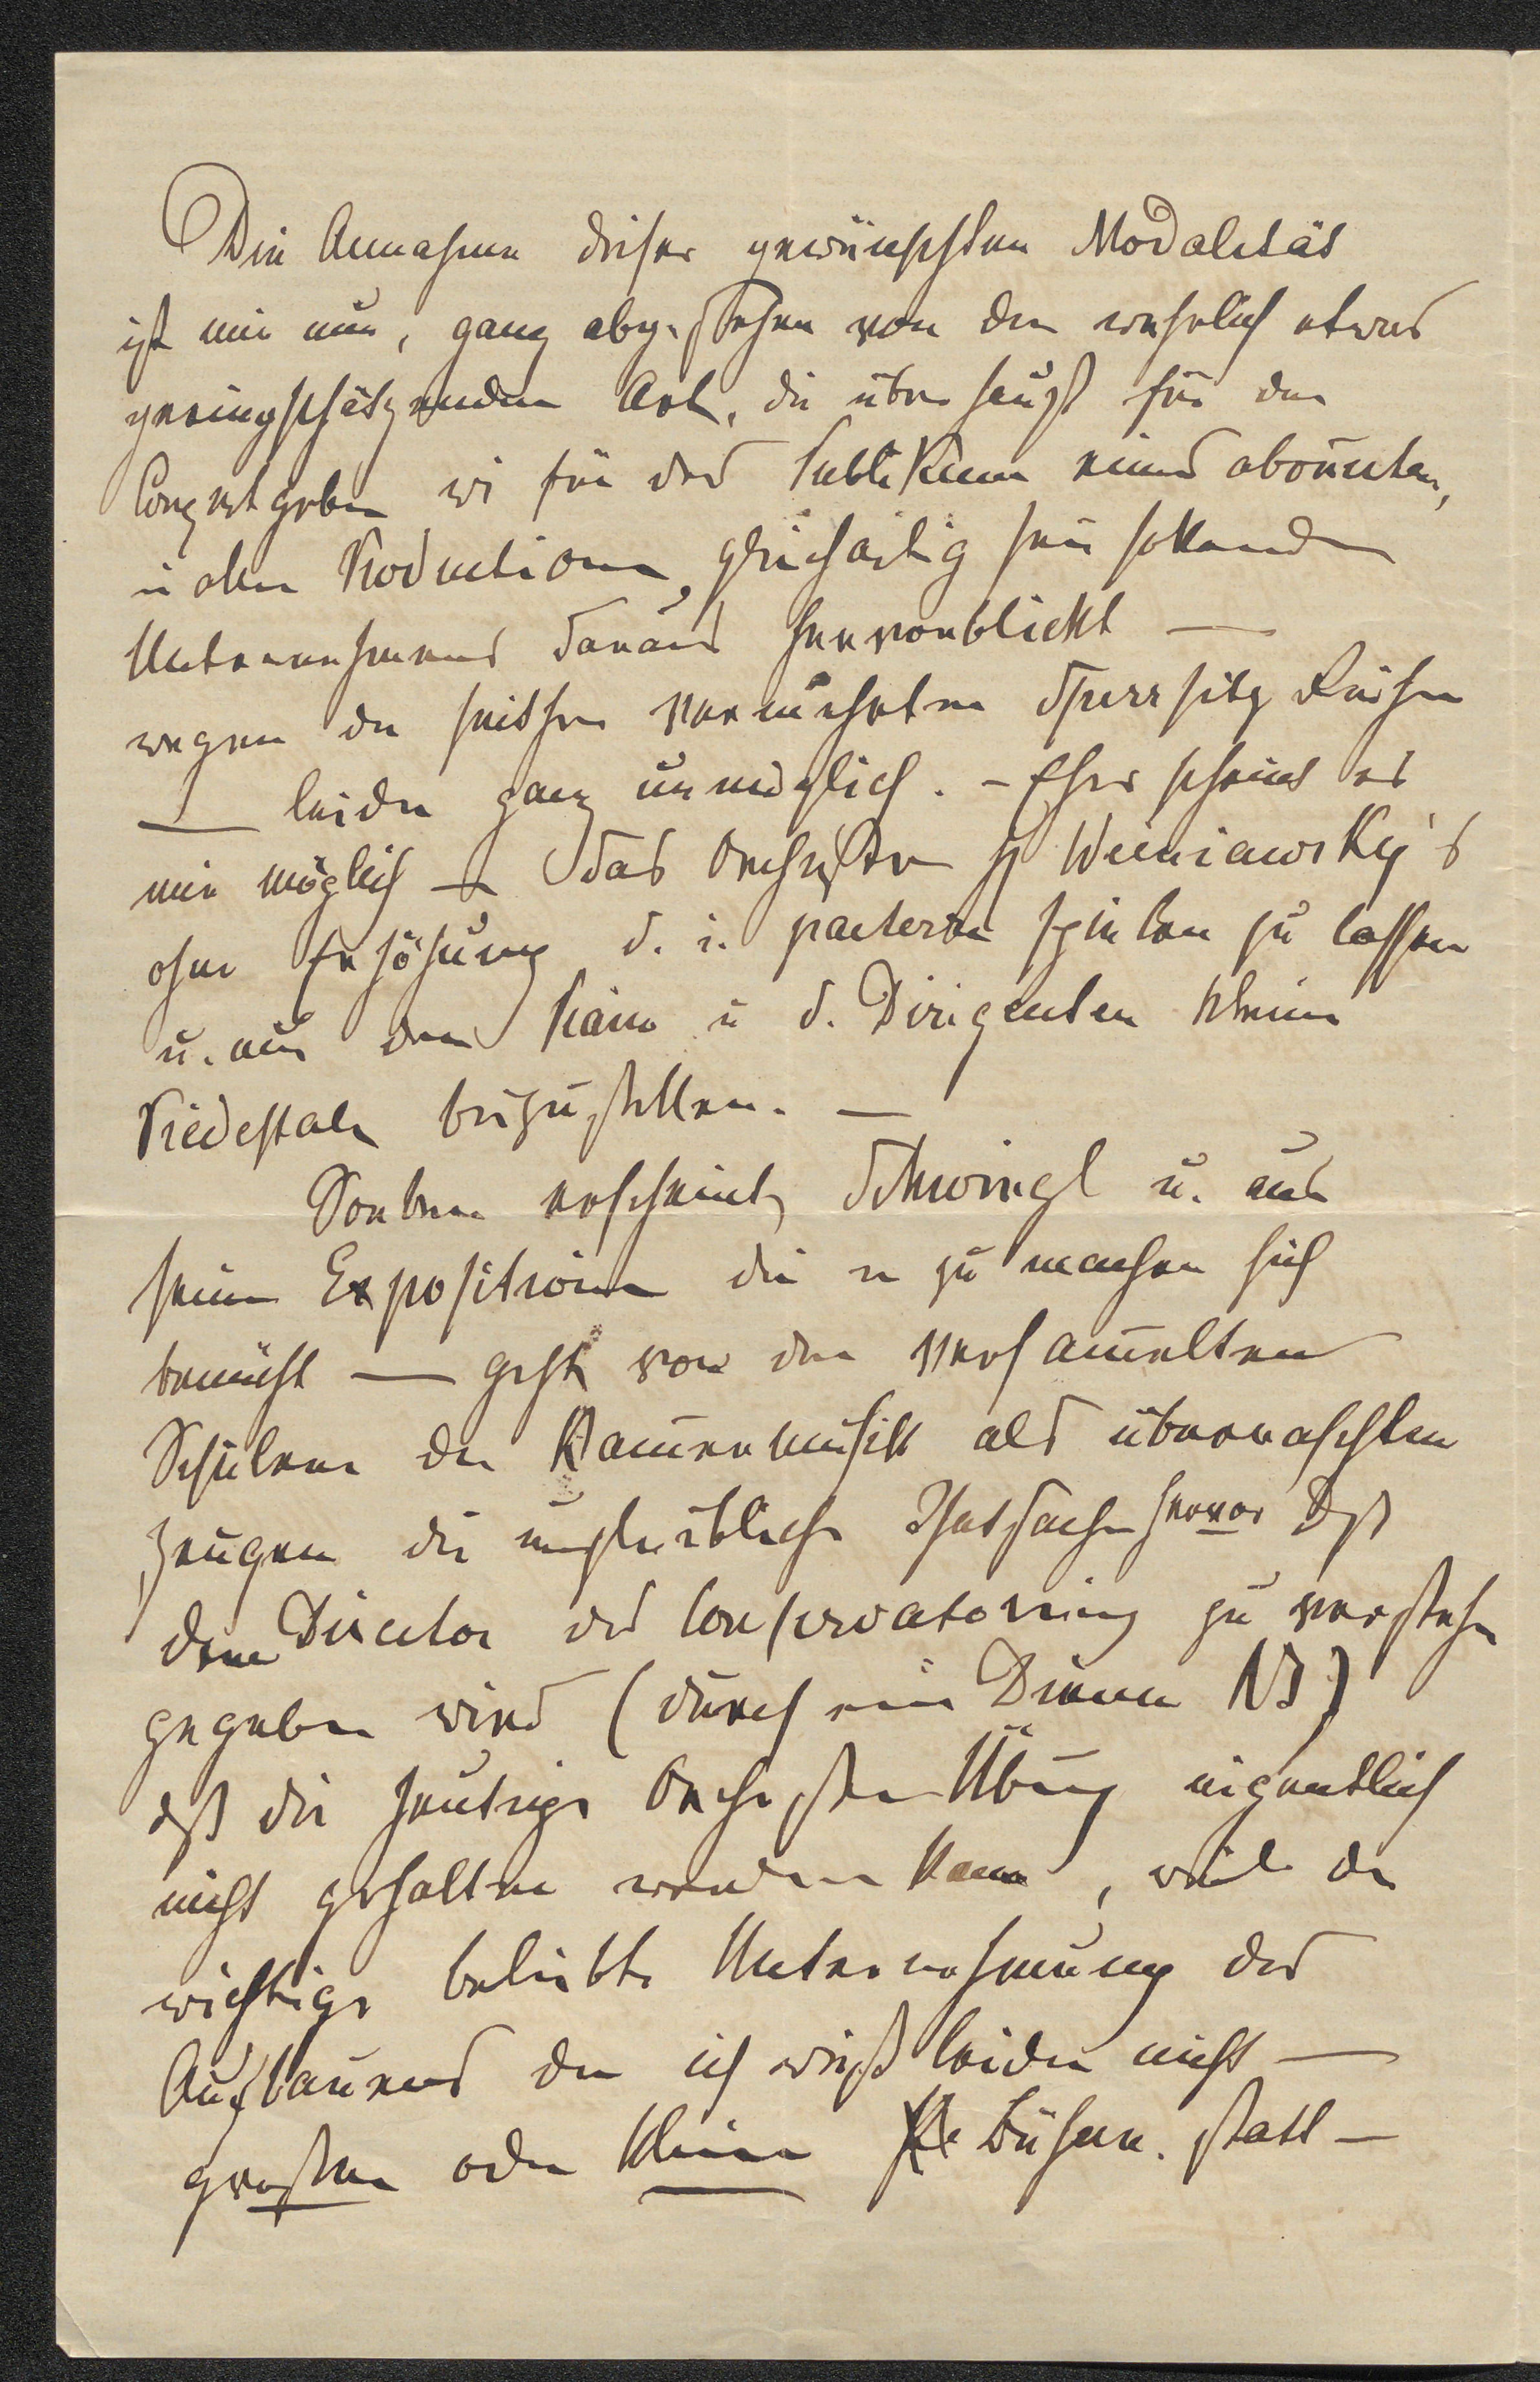 Die Annahme dieser gewünschten Modalität
ist mir nun, ganz abgesehen von der wahrlich etwas
geringschätzenden Art, die überhaupt für den
Conzertgeber wie für das Publikum eines abonnirten,
in allen Productionen, gleichartig sein sollenden
Unternehmens daraus hervorblickt —
wegen der seither vermehrten Sperrsitz Reihen
— leider ganz unmöglich. – Eher scheint es
mir möglich — das Orchester H Wieniawsky's
ohne Erhöhung d. i. parterre spielen zu lassen
u. nur dem Piano u d. Dirigenten kleine
Piedestale beizustellen. —
Soeben erscheint Schwingl u. aus
seinen Expositionen die er zu machen sich
bemüht — geht vor den versammelten
Schülern der Kammermusik als überraschten
Zeugen die unglaubliche Thatsache hervor daß
dem Director des Conservatoriums zu verstehen
gegeben wird (durch einen Diener NB)
daß die heutige Orchester Übung eigentlich
nicht gehalten werden kann, weil die
wichtige beliebte Unternehmung des
Aufbauens der ich weiß leider nicht —
großen oder kleinen Bühne. statt —